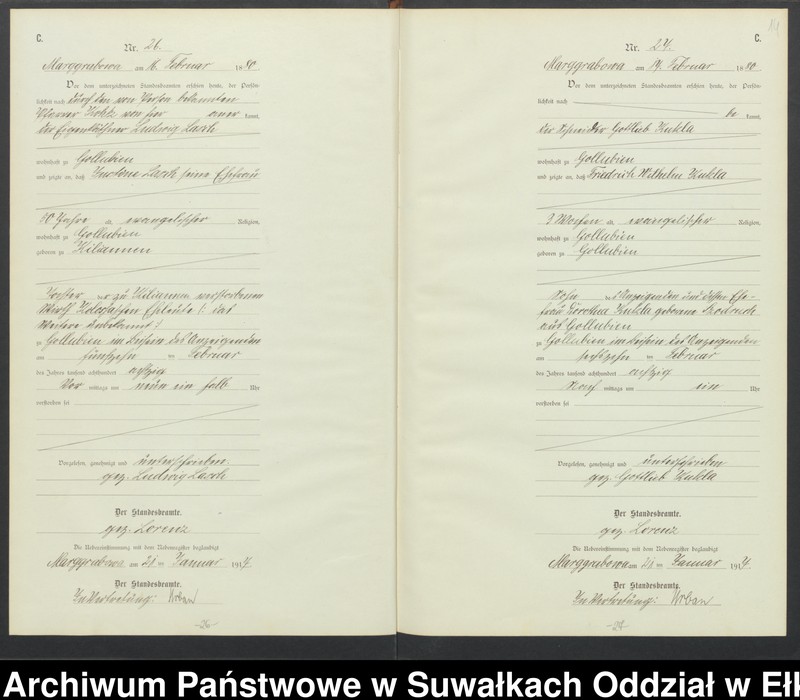 C.
Nr. 26.
Marggrabowa am 16. Februar 1880
Vor dem unterzeichneten Standesbeamten erschien heute, der Persön-
lichkeit nach durch den von Person bekannten
Pfarrer von hier kannt,
der Eigenkäthner Ludwig Lasch
wohnhaft zu Gollubien
und zeigte an, daß Lasch seine Ehefrau
80 Jahre alt, evangelischer Religion,
wohnhaft zu Gollubien
geboren zu Kiliannen
Tochter der zu Kiliannen verstorbenen
Wirth Eheleute
Weitere unbekannt
zu Gollubien im Beisein des Anzeigenden
am fünfzehn ten Februar
des Jahres tausend achthundert achtzig
Vor mittags um neun ein halb Uhr
verstorben sei
Vorgelesen, genehmigt und unterschrieben.
gez. Ludwig Lasch
Der Standesbeamte.
gez. Lorenz
Die Uebereinstimmung mit dem Nebenregister beglaubigt
Marggrabowa am 21. ten Januar 1914.
Der Standesbeamte.
In Vertretung: Urban
-26-
C.
Nr. 27.
Marggrabowa am 17. Februar 1880
Vor dem unterzeichneten Standesbeamten erschien heute, der Persön-
lichkeit nach be kannt,
der Schneider Gottlieb Kukla
wohnhaft zu Gollubien
und zeigte an, daß Friedrich Wilhelm Kukla
3 Wochen alt, evangelischer Religion,
wohnhaft zu Gollubien
geboren zu Gollubien
Sohn des Anzeigenden und dessen Ehe-
frau Dorothea Kukla geborene
aus Gollubien
zu Gollubien im Beisein des Anzeigenden
am sechszehn ten Februar
des Jahres tausend achthundert achtzig
Nach mittags um ein Uhr
verstorben sei
Vorgelesen, genehmigt und unterschrieben
gez. Gottlieb Kukla
Der Standesbeamte.
gez. Lorenz
Die Uebereinstimmung mit dem Nebenregister beglaubigt
Marggrabowa am 21. ten Januar 1914.
Der Standesbeamte.
In Vertretung: Urban
-27-
Archiwum Państwowe w Suwałkach Oddział w Eł